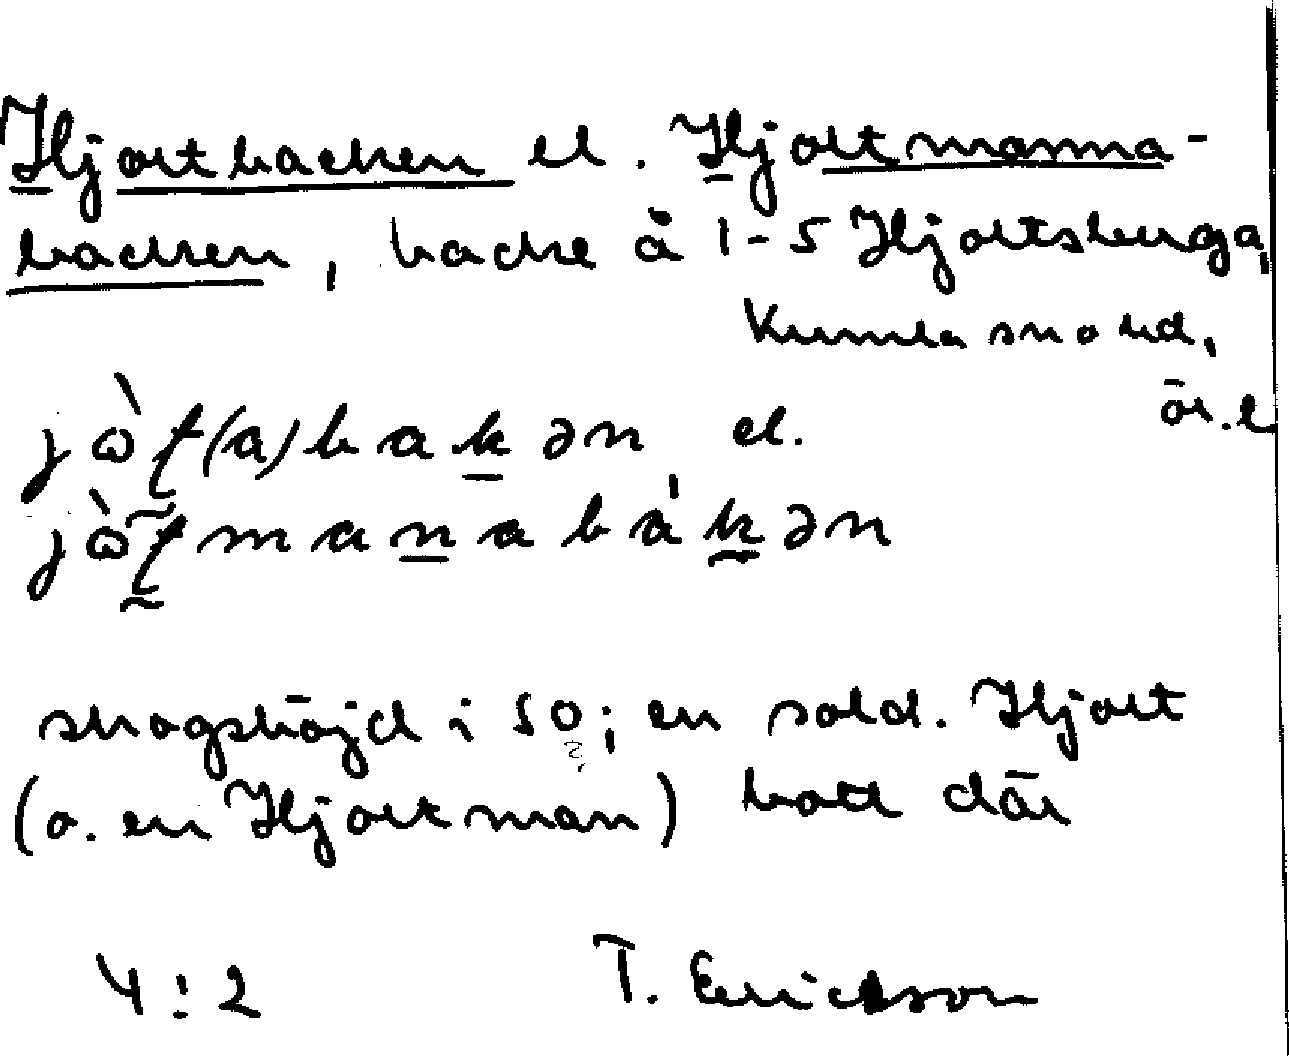 Hjortbacken el. Hjortmanna-
backen, backe å 1-5 Hjortsberga,
Kumla sn o hd,
ör. l
jò̀ʈ(a)bakən el.
jò̀ʈmanabákən
skogshöjd i SO; en sold. Hjort
(o. en Hjortman) bott där
4:2 T. Ericsson